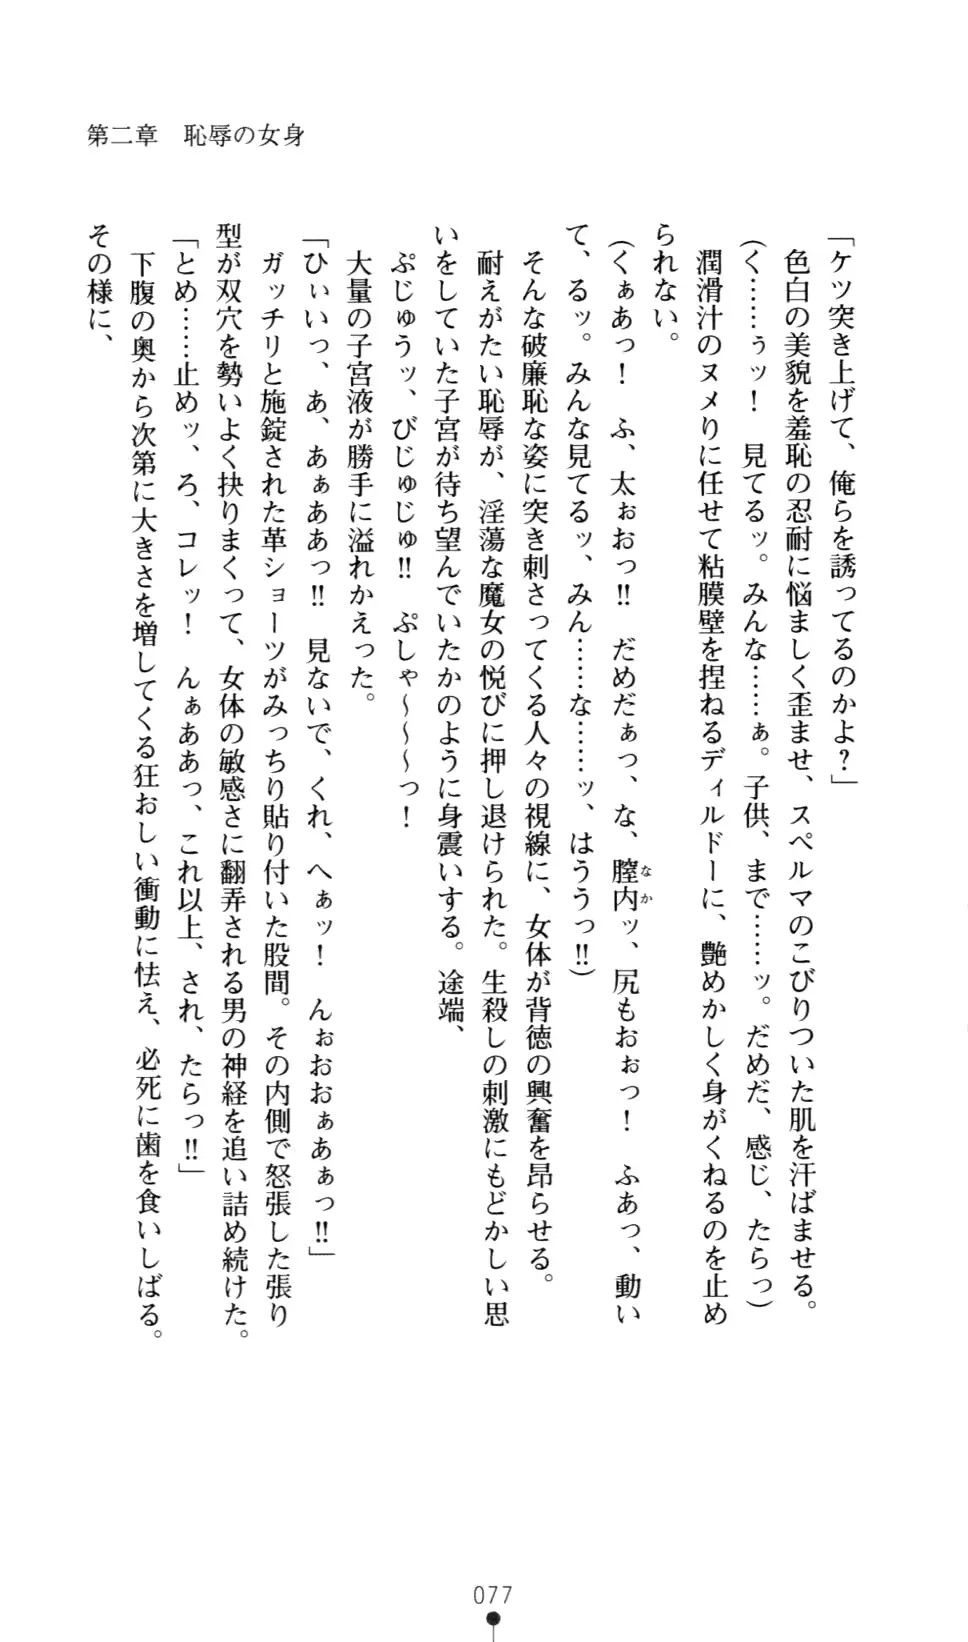 第二章　恥辱の女身
「ケツ突き上げて、俺らを誘ってるのかよ？」
色白の美貌を羞恥の忍耐に悩ましく歪ませ、スペルマのこびりついた肌を汗ばませる。
（く……ぅッ！　見てるッ。みんな……ぁ。子供、まで……ッ。だめだ、感じ、たらっ）
潤滑汁のヌメりに任せて粘膜壁を捏ねるディルドーに、艶めかしく身がくねるのを止め
られない。
（くぁあっ！　ふ、太ぉおっ‼　だめだぁっ、な、膣内ッ、尻もおぉっ！　ふあっ、動い
なか
て、るッ。みんな見てるッ、みん……な……ッ、はううっ‼）
そんな破廉恥な姿に突き刺さってくる人々の視線に、女体が背徳の興奮を昂らせる。
耐えがたい恥辱が、淫蕩な魔女の悦びに押し退けられた。生殺しの刺激にもどかしい思
いをしていた子宮が待ち望んでいたかのように身震いする。途端、
ぷじゅうッ、びじゅじゅ‼　ぷしゃ～～～っ！
大量の子宮液が勝手に溢れかえった。
「ひぃいっ、あ、あぁああっ‼　見ないで、くれ、へぁッ！　んぉおおぁあぁっ‼」
ガッチリと施錠された革ショーツがみっちり貼り付いた股間。その内側で怒張した張り
型が双穴を勢いよく抉りまくって、女体の敏感さに翻弄される男の神経を追い詰め続けた。
「とめ……止めッ、ろ、コレッ！　んぁああっ、これ以上、され、たらっ‼」
下腹の奥から次第に大きさを増してくる狂おしい衝動に怯え、必死に歯を食いしばる。
その様に、
077